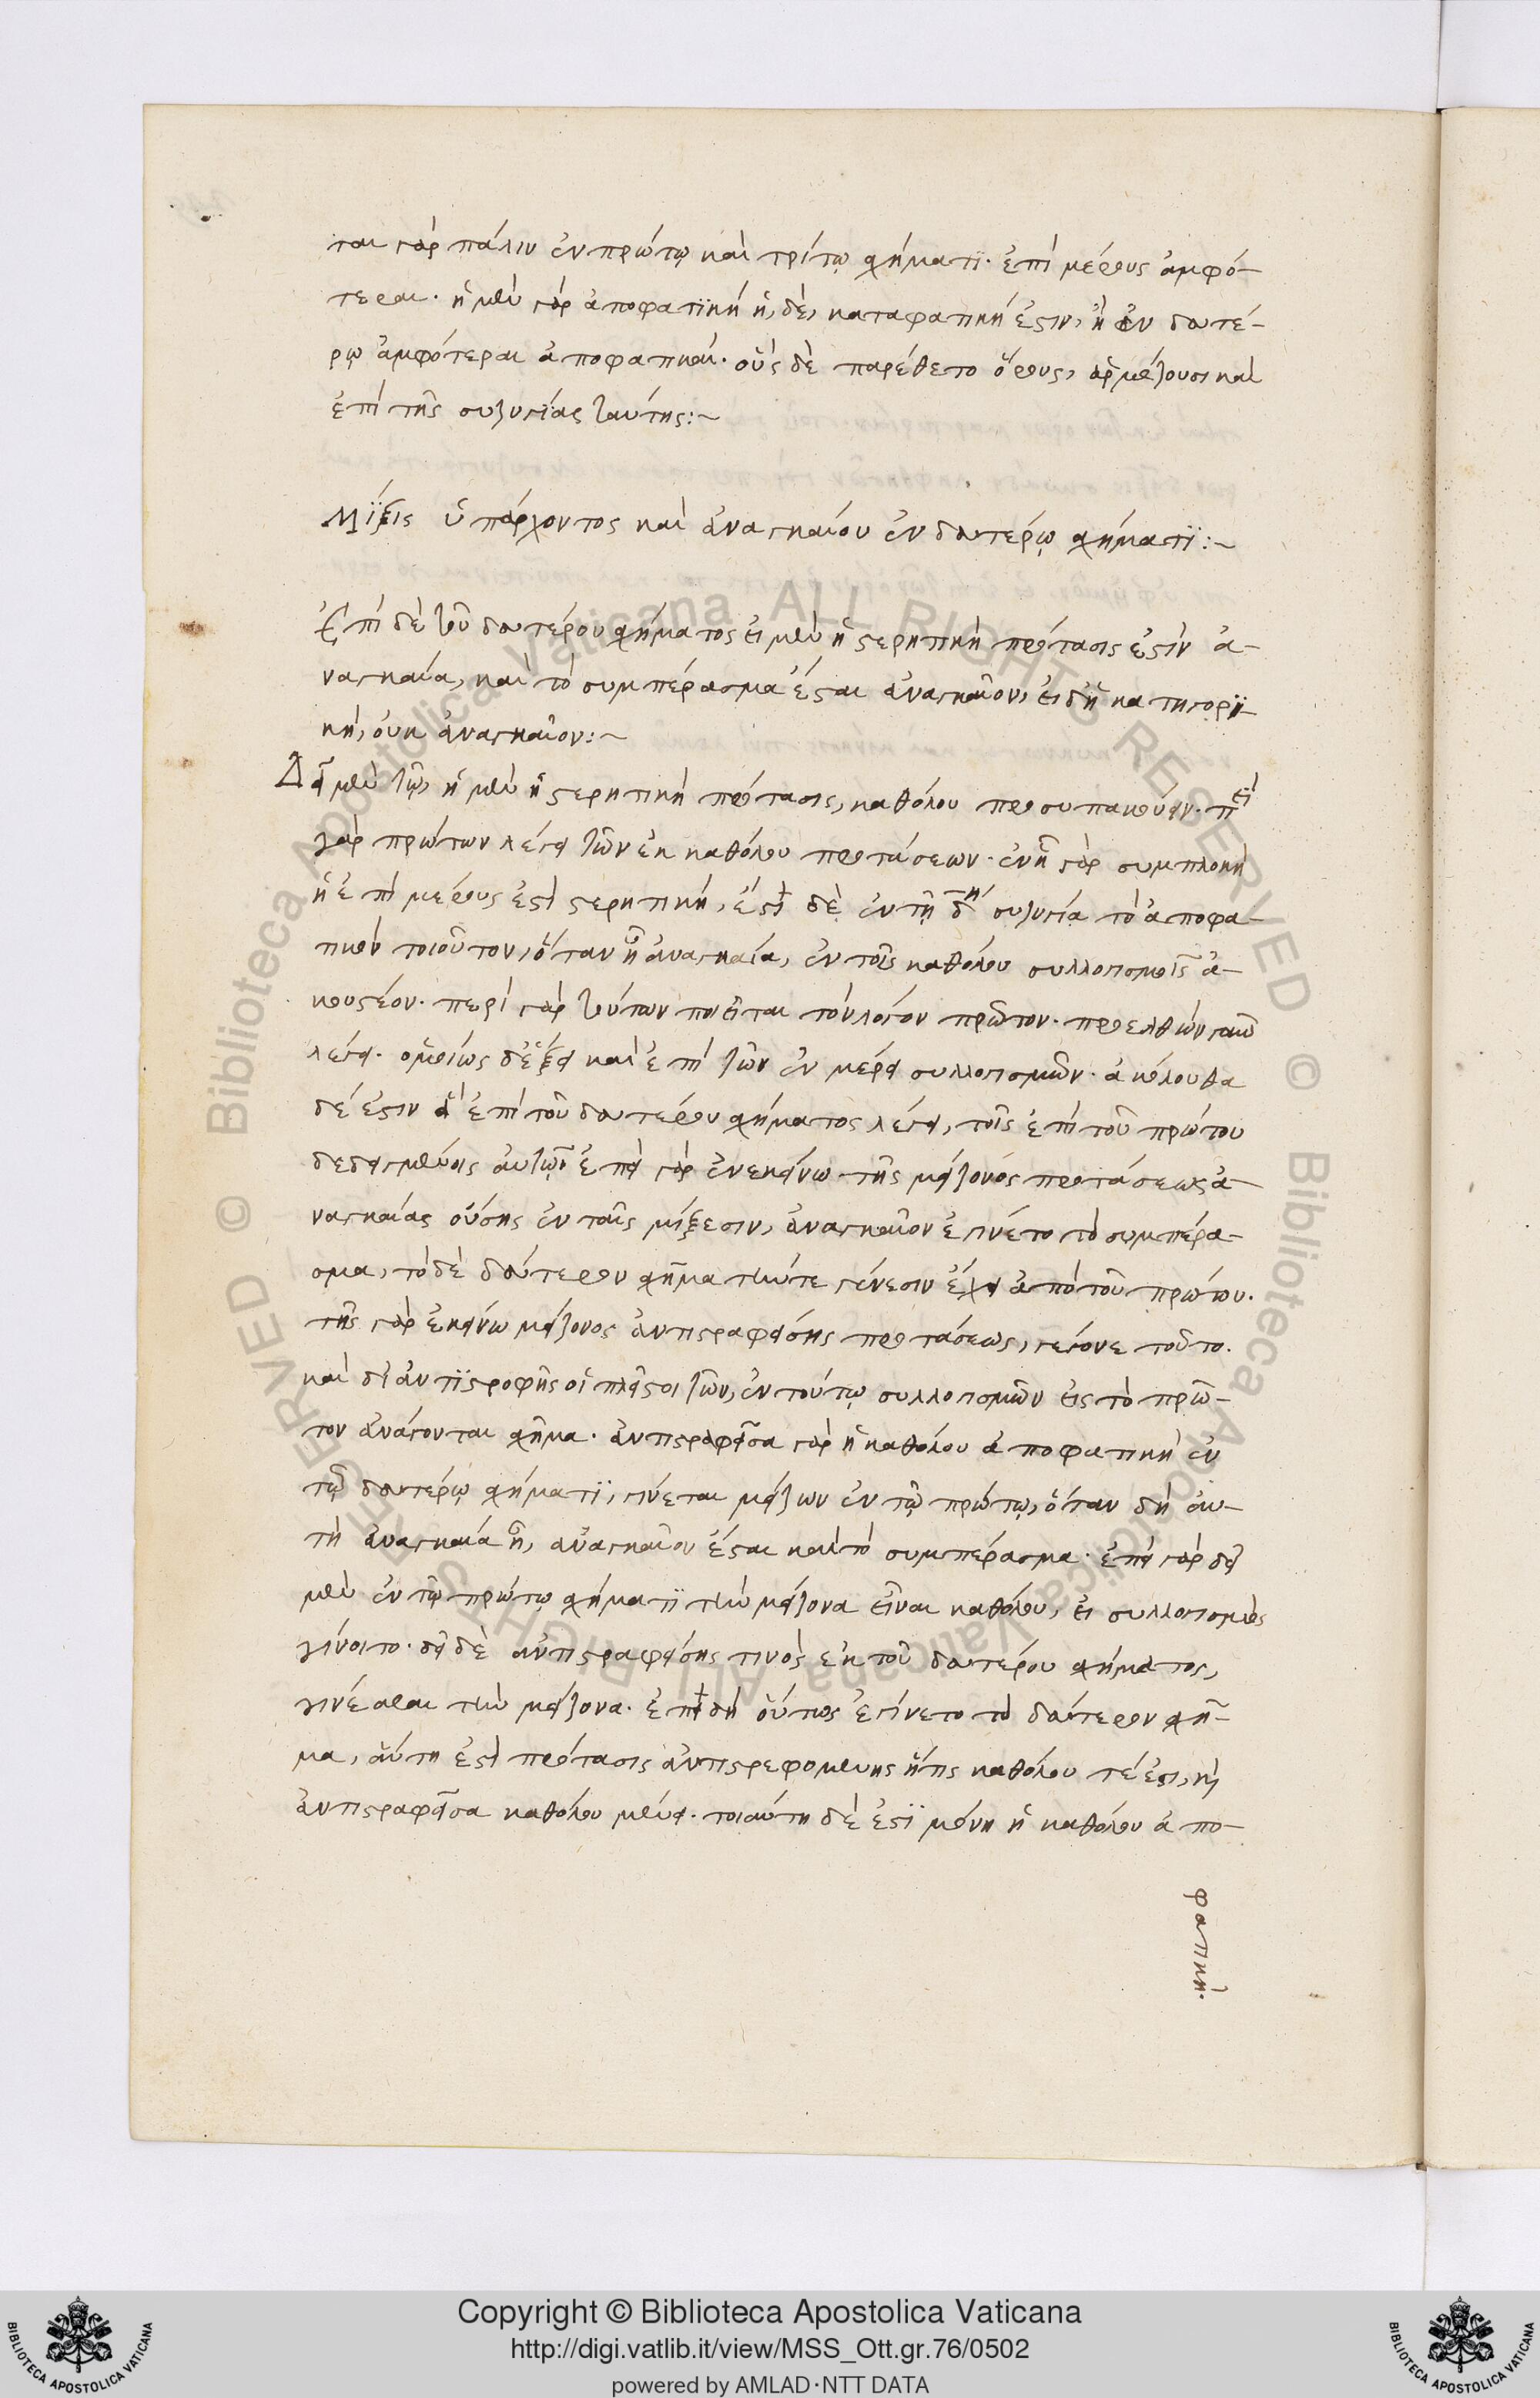 ται γὰρ πάλιν ἐν πρώτῳ καὶ τρίτῳ σχήματι. ἐπὶ μέρους ἀμφό-
τεραι. ἡ μὲν γὰρ ἀποφατικὴ ἡ, δὲ, καταφατική ἐστιν, ἢ ἐν δευτέ-
ρῳ ἀμφότεραι ἀποφατικαί. οὓς δὲ παρέθετο ὅρους, ἁρμόζουσι καὶ
ἐπὶ τῆς συζυγίας ταύτης:~
Μίξις ὑπάρχοντος καὶ ἀναγκαίου ἐν δευτέρῳ σχήματι:~
Ἐπὶ δὲ τοῦ δευτέρου σχήματος εἰ μὲν ἡ στερητικὴ πρότασις ἐστὶν ἀ-
ναγκαία, καὶ τὸ συμπέρασμα ἔσται ἀναγκαῖον, εἰ δ' ἡ κατηγορι-
κή, οὐκ ἀναγκαῖον:~
Δεῖ μὲν τῷ, ἡ μὲν ἡ στερητικὴ πρότασις, καθόλου προσυπακούειν. περὶ
γὰρ πρώτων λέγει τῶν ἐκ καθόλου προτάσεων. ἐν ᾗ γὰρ συμπλοκῇ
ἡ ἐπὶ μέρους ἐστὶ στερητική, ἔστι δὲ ἐν τῇ δῃ συζυγίᾳ τὸ ἀποφα-
τικὸν τοιοῦτον, ὅταν ᾖ ἀναγκαία, ἐν τοῖς καθόλου συλλογισμοῖς ἀ-
κουστέον. περὶ γὰρ τούτων ποιεῖται τὸν λόγον πρῶτον. προελθὼν γοῦν
λέγει. ὁμοίως δ' ἕξει καὶ ἐπὶ τῶν ἐν μέρει συλλογισμῶν. ἀκόλουθα
δέ ἐστιν ἃ ἐπὶ τοῦ δευτέρου σχήματος λέγει, τοῖς ἐπὶ τοῦ πρώτου
δεδειγμένοις αὐτῷ. ἐπεὶ γὰρ ἐν ἐκείνῳ τῆς μείζονος προτάσεως ἀ-
ναγκαίας οὔσης ἐν ταῖς μίξεσιν, ἀναγκαῖον ἐγίνετο τὸ συμπέρα-
σμα, τὸ δὲ δεύτερον σχῆμα τήν τε γένεσιν ἔχει ἀπὸ τοῦ πρώτου.
τῆς γὰρ ἐκείνῳ μείζονος ἀντιστραφείσης προτάσεως, γέγονε τοῦτο.
καὶ δι' ἀντιστροφῆς οἱ πλεῖστοι τῶν, ἐν τούτῳ συλλογισμῶν εἰς τὸ πρῶ-
τον ἀνάγονται σχῆμα. ἀντιστραφεῖσα γὰρ ἡ καθόλου ἀποφατικὴ ἐν
τῷ δευτέρῳ σχήματι, γίνεται μείζων ἐν τῷ πρώτῳ, ὅταν δὴ αὐ-
τὴ ἀναγκαία ᾖ, ἀναγκαῖον ἔσται καὶ τὸ συμπέρασμα. ἐπεὶ γὰρ δεῖ
μὲν ἐν τῷ πρώτῳ σχήματι τὴν μείζονα εἶναι καθόλου, εἰ συλλογισμὸς
γίνοιτο. δεῖ δὲ ἀντιστραφείσης τινὸς ἐκ τοῦ δευτέρου σχήματος,
γινέσθαι τὴν μείζονα. ἐπειδὴ οὕτως ἐγίνετο τὸ δεύτερον σχῆ-
μα, αὕτη ἐστὶ πρότασις ἀντιστρεφομένης ἥτις καθόλου τέ ἐστι, καὶ
ἀντιστραφεῖσα καθόλου μένει. τοιαύτη δὲ ἐστὶ μόνη ἡ καθόλου ἀπο-
φατική.
Copyright © Biblioteca Apostolica Vaticana
http://digi.vatlib.it/view/MSS_Ott.gr.76/0502
powered by AMLAD·NTT DATA